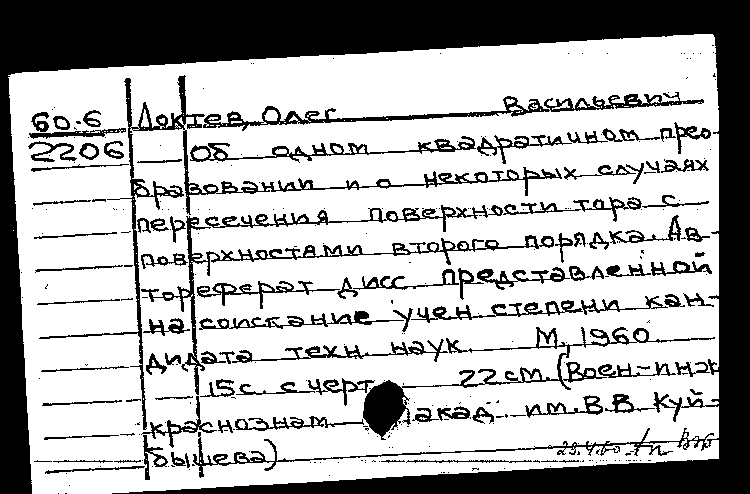 60-6 Локтев, Олег Васильевич
2206 Об одном квадратичном прео-
бразовании и о некоторых случаях
пересечения поверхности тора с
поверхностями второго порядка. Ав-
тореферат дисс. представленной
на соискание учен степени кан-
дидата техн. наук. М., 1960.
15с. с черт. 22см. (Воен.-инж
краснознам акад. им. В.В. Куй-
бышева)